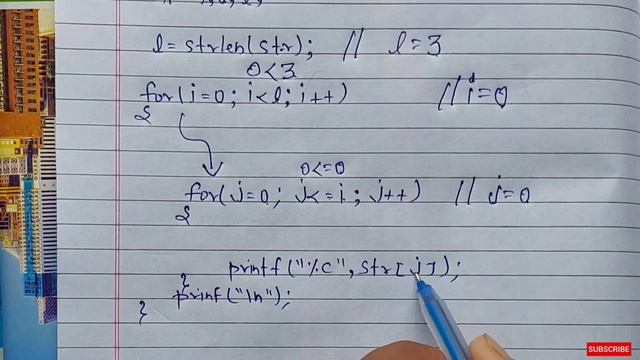 l=strlen(str); // l=3
0<3
for(i=0; i<l; i++) // i=0
{
0<=0
for(j=0; j<=i; j++) // j=0
{
printf("%c",str[j]);
}
prinf("\n");
}
SUBSCRIBE